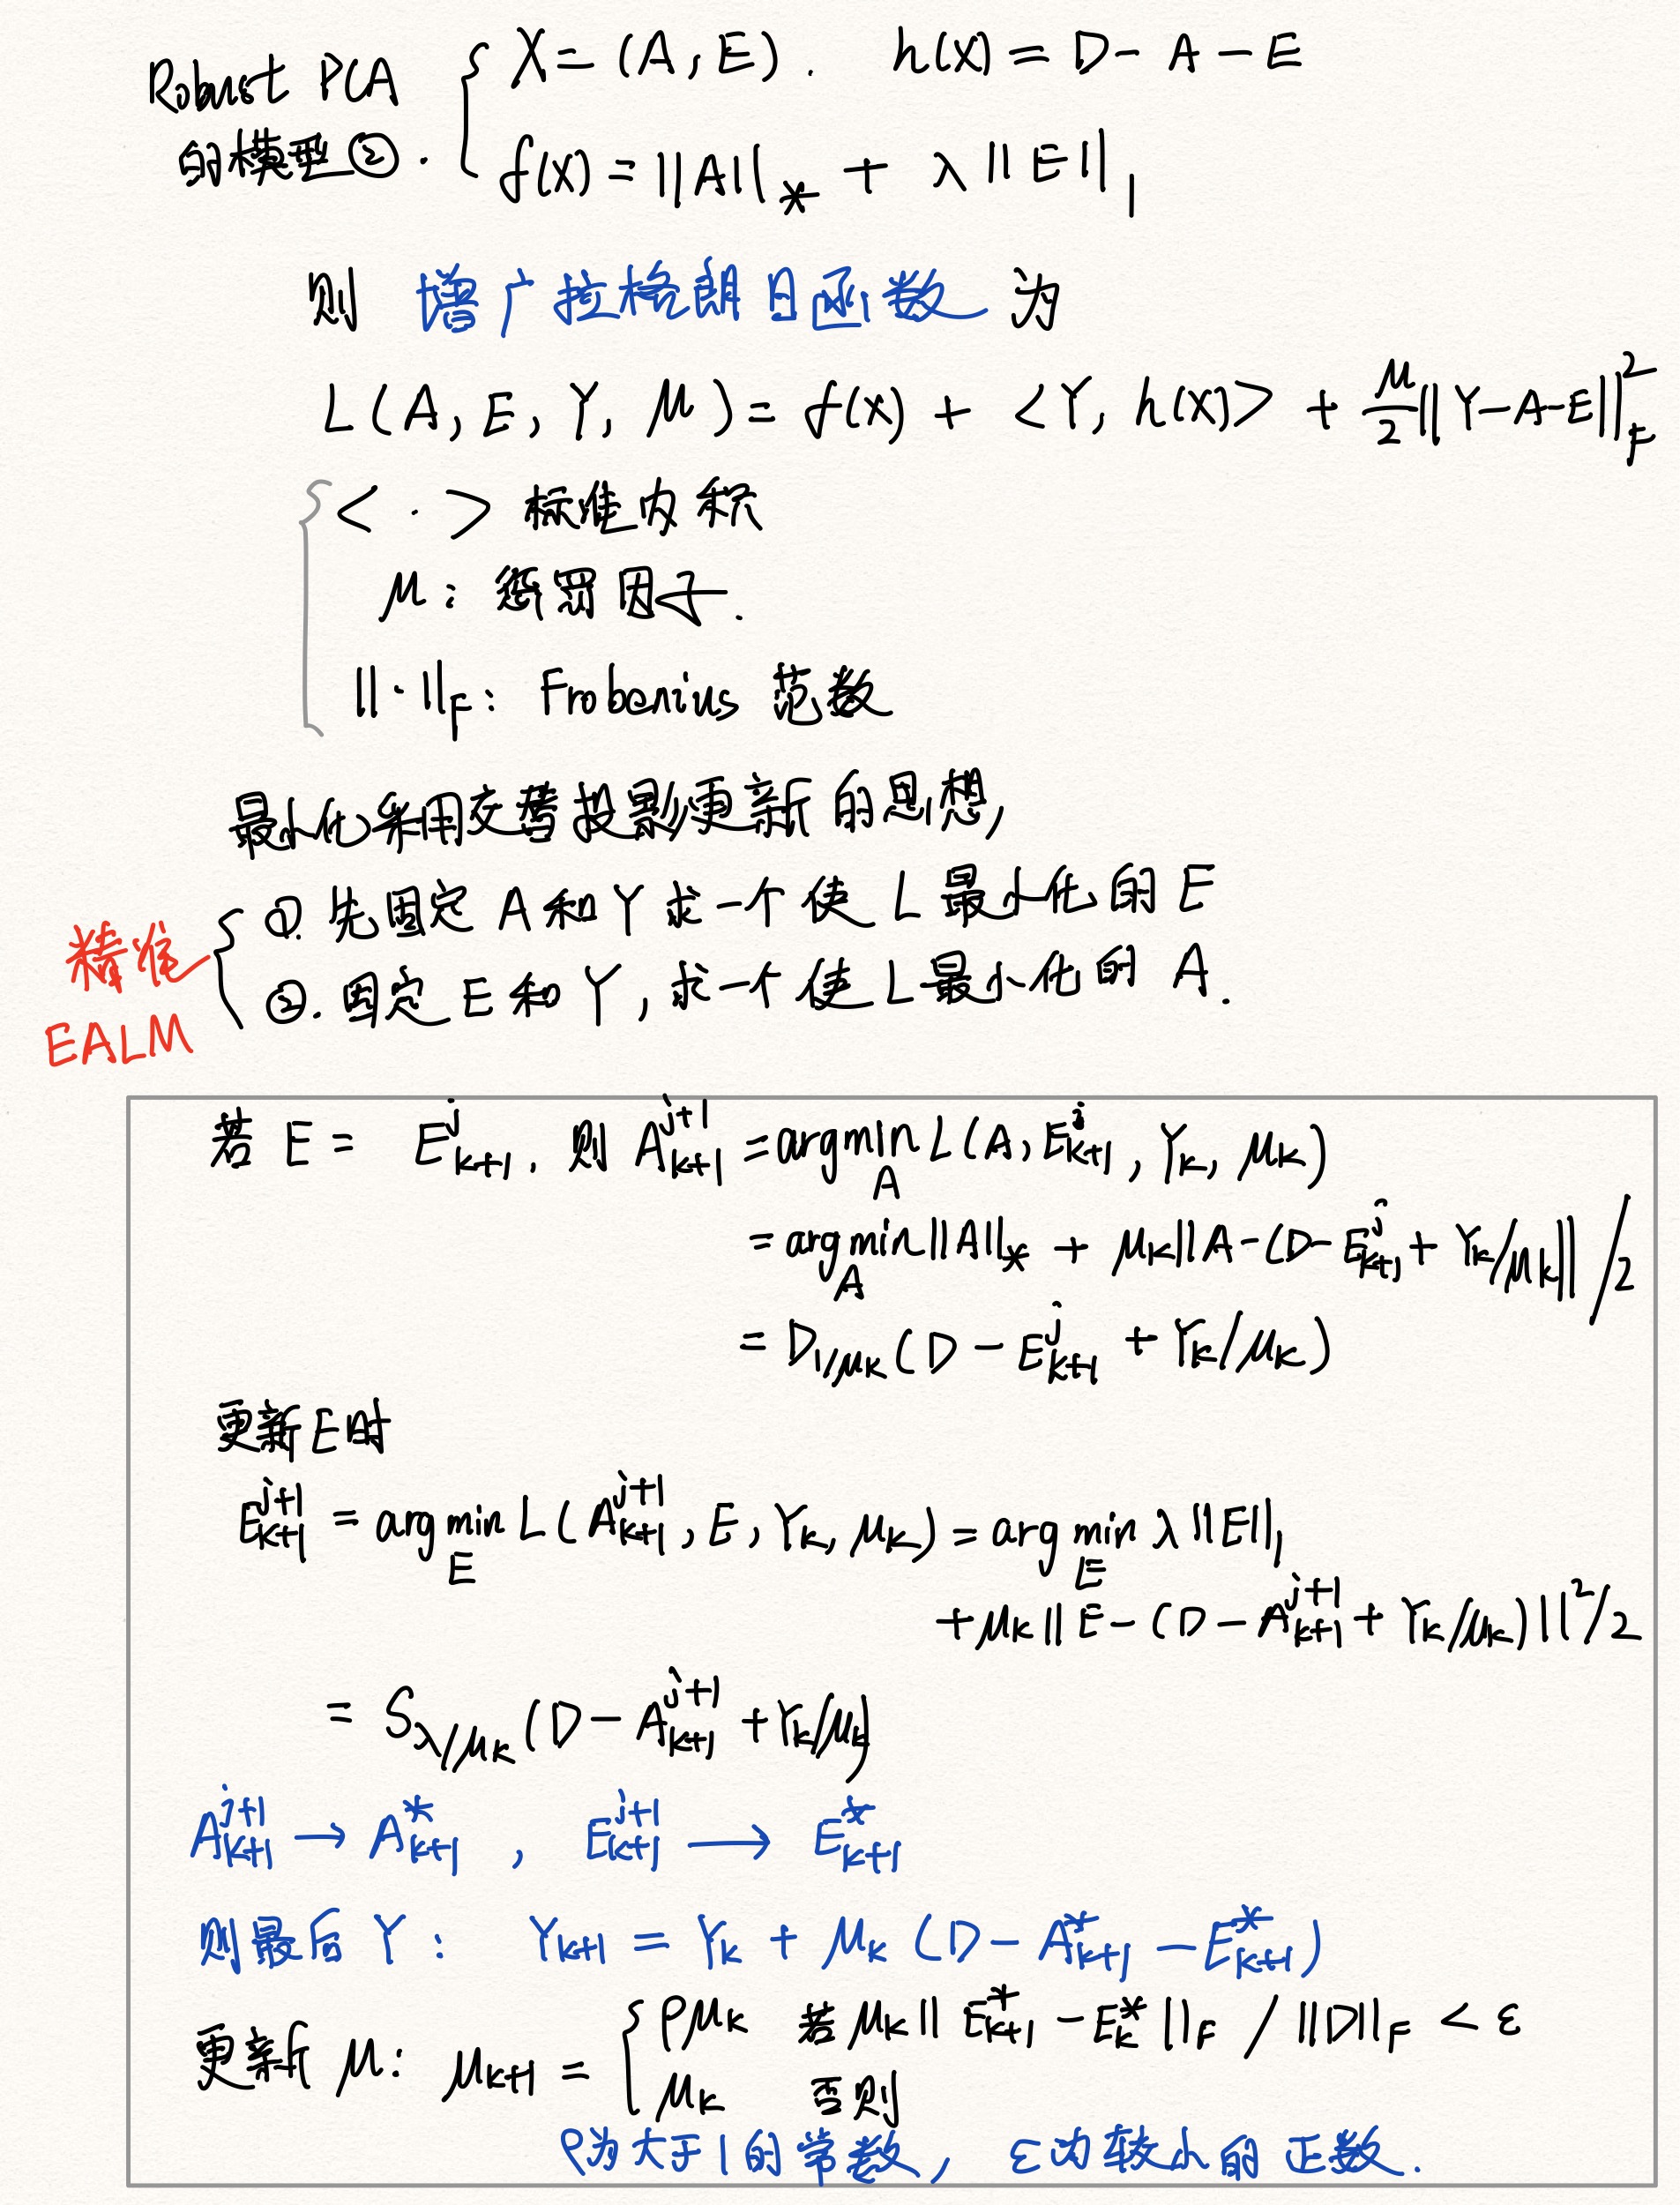 Robust PCA
的模型②.
X = (A, E). h(X) = D - A - E
f(X) = ||A||_* + λ||E||_1
则 增广拉格朗日函数 为
L(A, E, Y, μ) = f(X) + <Y, h(X)> + μ/2 ||Y-A-E||_F^2
< · > 标准内积
μ: 惩罚因子.
||·||_F: Frobenius 范数
最小化采用交替投影更新的思想,
精准
EALM
①. 先固定 A 和 Y 求一个使 L 最小化的 E
②. 固定 E 和 Y, 求一个使 L 最小化的 A.
若 E = E_{k+1}^j, 则 A_{k+1}^{j+1} = argmin_A L(A, E_{k+1}^j, Y_k, μ_k)
= argmin_A ||A||_* + μ_k||A-(D-E_{k+1}^j + Y_k/μ_k|| /2
= D_{1/μ_k}(D - E_{k+1}^j + Y_k/μ_k)
更新E时
E_{k+1}^{j+1} = arg min_E L(A_{k+1}^{j+1}, E, Y_k, μ_k) = arg min_E λ||E||_1
+ μ_k||E-(D-A_{k+1}^{j+1} + Y_k/μ_k)||^2/2
= S_{λ/μ_k}(D - A_{k+1}^{j+1} + Y_k/μ_k)
A_{k+1}^{j+1} → A_{k+1}^*, E_{k+1}^{j+1} → E_{k+1}^*
则最后 Y: Y_{k+1} = Y_k + μ_k (D - A_{k+1}^* - E_{k+1}^*)
更新 μ: μ_{k+1} = { ρμ_k 若 μ_k|| E_{k+1}^* - E_k^* ||_F / ||D||_F < ε
μ_k 否则
ρ为大于1的常数, ε为较小的正数.